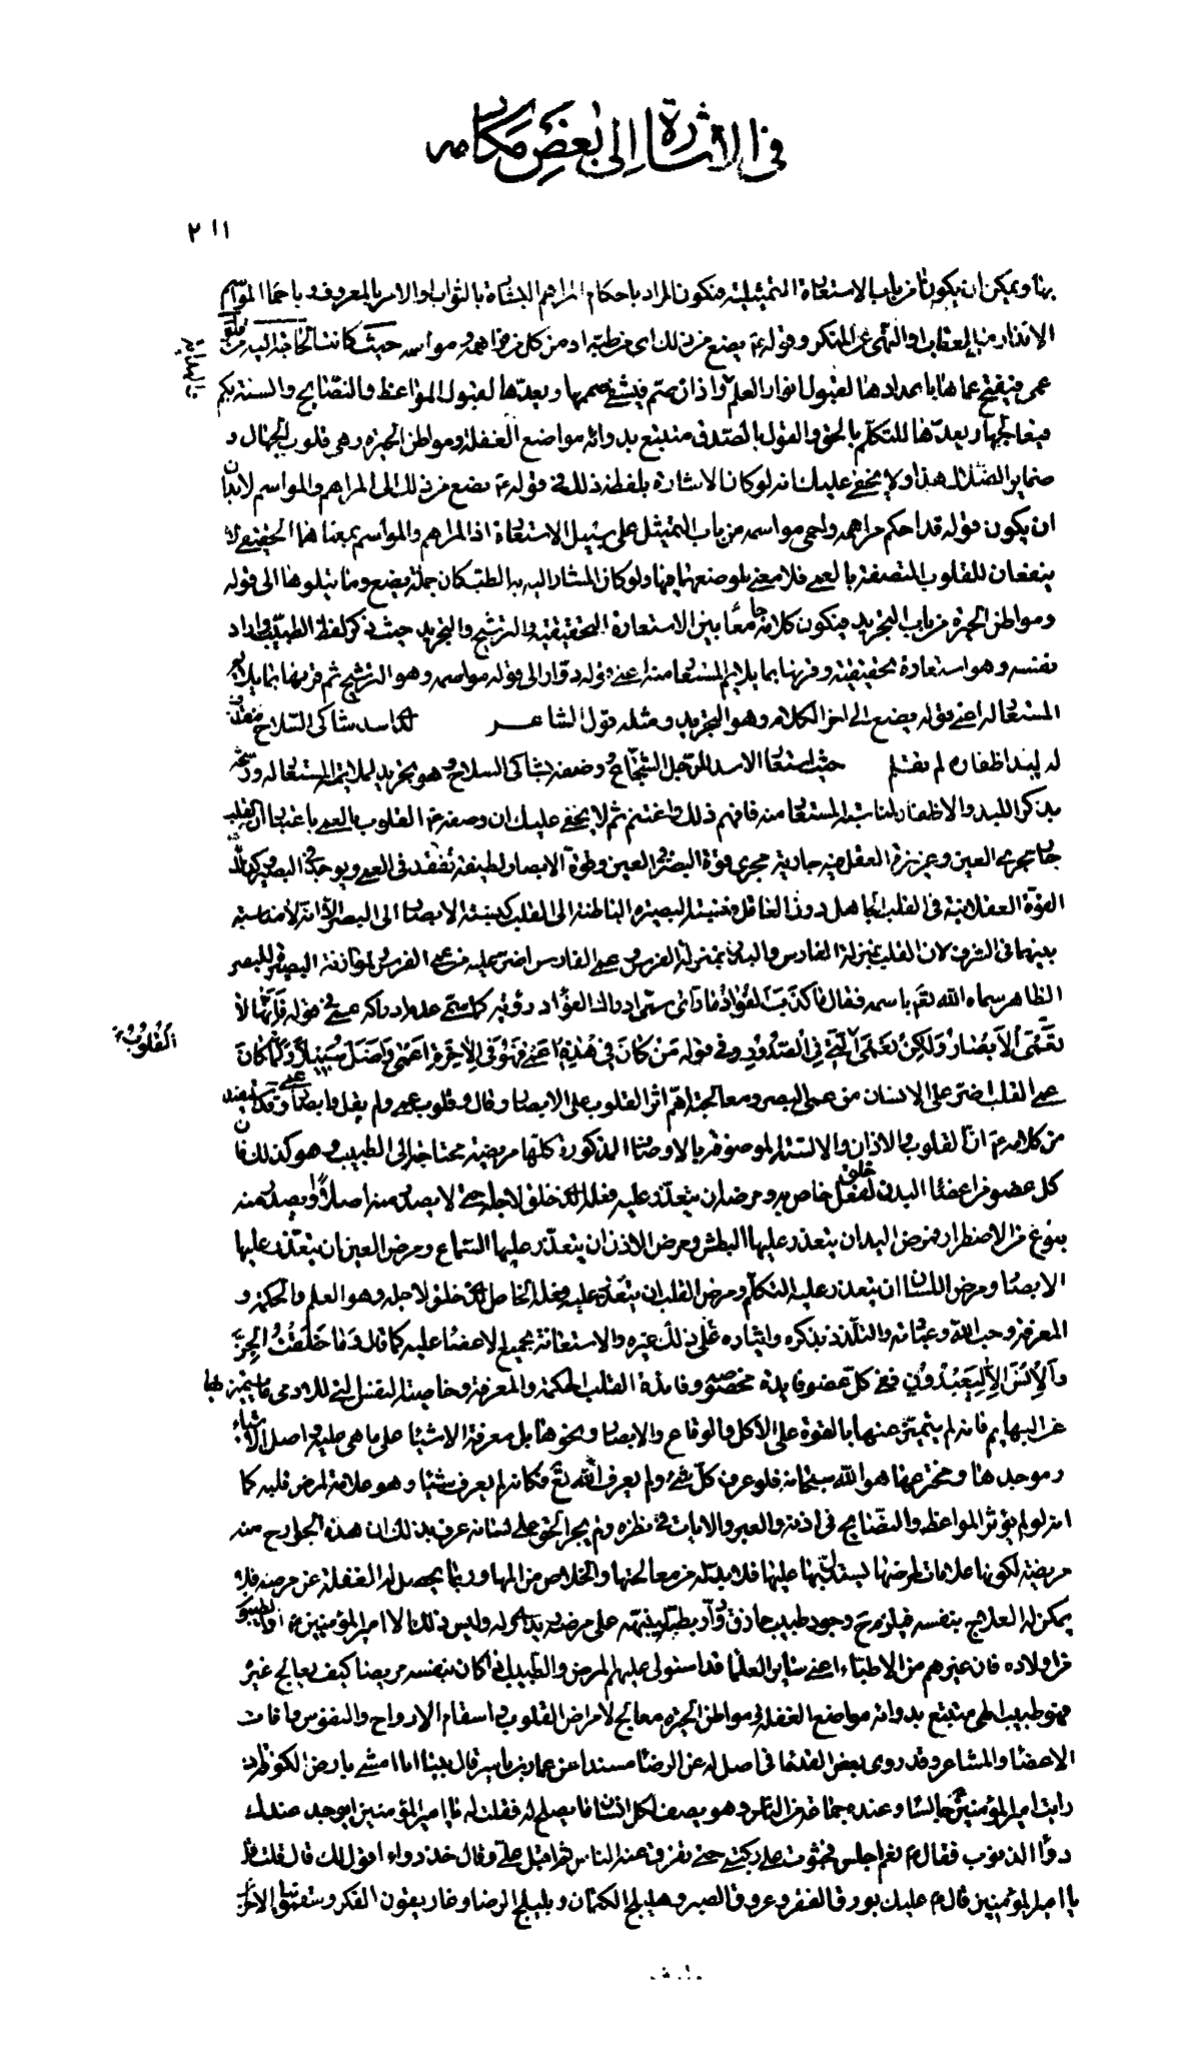 في الاشارة الى بعض مكارمه
٢١١
بها ويمكن ان يكون من باب الاستعارة التمثيلية فيكون المراد باحكام المراهم البشارة بالثواب او الامر بالمعروف وباحماء المواسم
الانذار من العقاب او النهى عن المنكر وقوله ع يضع من ذلك اى من طبه او من كل من مراهمه و مواسمه حيث كانت الحاجة اليه من قلوب
عمى فيفتح عماها باعدادها لقبول انوار العلم واذان صم فيشفى صممها ويعدها لقبول المواعظ والنصايح والسنة بكم
فيعالجها ويعدها للتكلم بالحق والقول بالصدق متتبع بدوائه مواضع الغفلة ومواطن الحيرة وهى قلوب الجهال و
ضماير الضلال هذا ولا يخفى عليك انه لو كان الاشارة بلفظة ذلك فى قوله ع يضع من ذلك الى المراهم والمواسم لابد
ان يكون قوله قد احكم مراهمه واحمى مواسمه من باب التمثيل على سبيل الاستعارة اذ المراهم والمواسم بمعناهما الحقيقى لا
ينفعان للقلوب المتصفة بالعمى فلا معنى لوضعهما فيها ولو كان المشار اليه به الطب كان جملة يضع وما يتلوها الى قوله
ومواطن الحيرة من باب التجريد فيكون كلامه جامعا بين الاستعارة التحقيقية والترشيح والتجريد حيث ذكر لفظ الطبيب واراد
نفسه وهو استعارة تحقيقية وقرنها بما يلايم المستعار منه اعنى قوله دوار الى قوله مواسمه وهو الترشيح ثم قرنها بما يلايم
المستعار له اعنى قوله يضع الى اخر الكلام وهو التجريد ومثله قول الشاعر لدى اسد شاكى السلاح مقذف
له لبد اظفاره لم تقلم حيث استعار الاسد للرجل الشجاع ووصفه بشاكى السلاح وهو تجريد لملائمة المستعار له ورشحه
بذكر اللبد والاظفار لمناسبة المستعار منه فافهم ذلك واغتنم ثم لا يخفى عليك ان وصفه ع القلوب بالعمى باعتبار ان القلب
جار مجرى العين وغريزة العقل فيه جارية مجرى قوة البصر فى العين وقوة الابصار لطيفة تفقد فى العمى ويوجد فى البصير كما ان
القوة العقلانية فى القلب الجاهل دون العاقل ونسبة البصيرة الباطنة الى القلب كنسبة الابصار الى البصر الا انه لا مناسبة
بينهما فى الشرف لان القلب بمنزلة الفارس والبدن بمنزلة الفرس وعمى الفارس اضر عليه من عمى الفرس ولموازنة البصيرة للبصر
الظاهر سماه الله تعالى باسمه فقال ما كذب الفؤاد ما رأى سمى ادراك الفؤاد رؤية كما سمى عدم ادراكه عمى فى قوله فانها لا
تعمى الابصار ولكن تعمى القلوب التى فى الصدور وفى قوله من كان فى هذه اعمى فهو فى الاخرة اعمى واضل سبيلا ولما كان
عمى القلب اضر على الانسان من عمى البصر ومعالجته اهم اثر القلوب على الابصار وقال و قلوب عمى ولم يقل وابصار عمى وقد استفيد
من كلامه ع ان القلوب والاذان والالسنة الموصوفة بالاوصاف المذكورة كلها مريضة محتاجة الى الطبيب وهو كذلك فان
كل عضو من اعضاء البدن خلق لفعل خاص به ومرضه ان يتعذر عليه فعله الذى خلق لاجله حتى لا يصدر منه اصلا او يصدر منه
بنوع من الاضطراب فمرض اليد ان يتعذر عليها البطش ومرض الاذن ان يتعذر عليها السماع ومرض العين ان يتعذر عليها
الابصار ومرض اللسان ان يتعذر عليه التكلم ومرض القلب ان يتعذر عليه فعله الخاص الذى خلق لاجله وهو العلم والحكمة و
المعرفة وحب الله وعبادته والتلذذ بذكره وايثاره على ذلك غيره والاستعانة بجميع الاعضاء عليه كما قال وما خلقت الجن
والانس الا ليعبدون ففى كل عضو فايدة مخصوصة وفائدة القلب الحكمة والمعرفة وخاصية النفس التى للادمى ما يتميز بها
عن البهايم فانه لم يتميز عنها بالقوة على الاكل والوقاع والابصار ونحوها بل بمعرفة الاشياء على ما هى عليه واصل الاشياء
وموجدها ومخترعها هو الله سبحانه فلو عرف كل شئ ولم يعرف الله تعالى فكانه لم يعرف شيئا وهو علامة لمرض قلبه كما
انه لو لم يؤثر المواعظ والنصايح فى اذنه والعبر والايات فى نظره ولم يجر الحق على لسانه عرف بذلك ان هذه الجوارح منه
مريضة لكونها علامات لمرضها ليستدل بها عليها فلابد له من معالجتها والخلاص من المها وربما يحصل له الغفلة عن مرضه فلا
يمكن له العلاج بنفسه فيلزم ح وجود طبيب حاذق دوار بطبه لينبهه على مرضه ويداويه له وليس ذلك الا امير المؤمنين ع او الطيبون
من اولاده فان غيرهم من الاطباء اعنى ساير العلماء قد استولى عليهم المرض والطبيب اذا كان بنفسه مريضا كيف يعالج غيره
فهو طبيب الهى متتبع بدوائه مواضع الغفلة ومواطن الحيرة معالج لامراض القلوب واسقام الارواح والنفوس وافات
الاعضاء والمشاعر وقد روى بعض القدماء فى اصل له عن الرضا مسندا عن عمار بن ياسر قال بينا انا امشى بارض الكوفة اذ
رايت امير المؤمنين ع جالسا وعنده جماعة من الناس وهو يصف لكل انسان ما يصلح له فقلت له يا امير المؤمنين ايوجد عندك
دواء الذنوب فقال ع نعم اجلس فجثوت على ركبتى حتى تفرق عنه الناس ثم اقبل على وقال خذ دواء اقول لك قال قلت قل
يا امير المؤمنين قال ع عليك بورق الفقر وعروق الصبر وهليلج الكتمان وبليلج الرضا وغاريقون الفكر وسقمونيا الاحزان